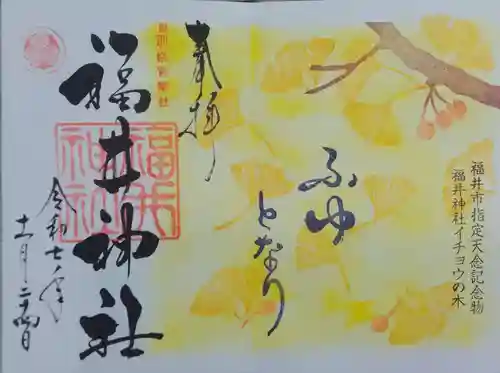 福井市指定天然記念物
福井神社イチョウの木
ふゆ
となり
奉拝
別格官幣社
福井神社
福井
神社
令和七年
十一月二十四日